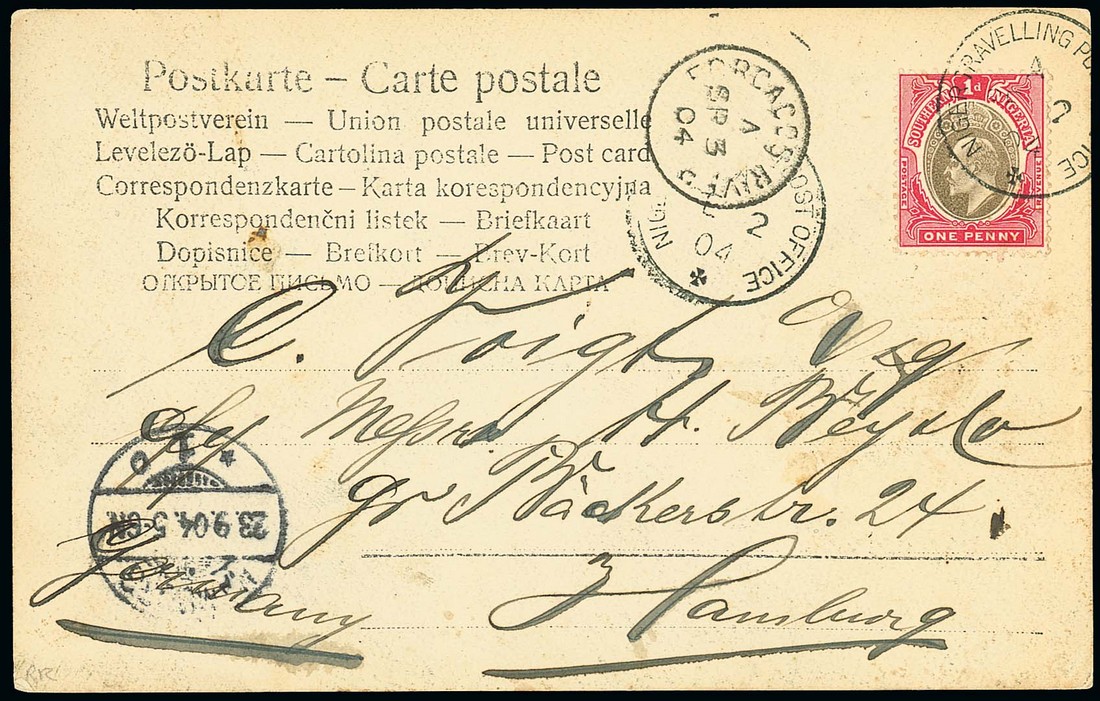 Postkarte – Carte postale
Weltpostverein — Union postale universelle
Levelező-Lap — Cartolina postale — Post card
Correspondenzkarte – Karta korespondencyjna
Korrespondenční listek — Briefkaart
Dopisnice — Brefkort — Brev-Kort
ОТКРЫТОЕ ПИСЬМО — ДОПИСНА КАРТА
FORCADOS RIVER
A
SP 3
04
POST OFFICE
2
04
TRAVELLING PO
ICE
A
SOUTHERN NIGERIA
1d
POSTAGE
REVENUE
ONE PENNY
C. Voigt Esq
Messrs H.
gr Bäckerstr. 24
Hamburg
Germany
1
23.9.04. 5-6N